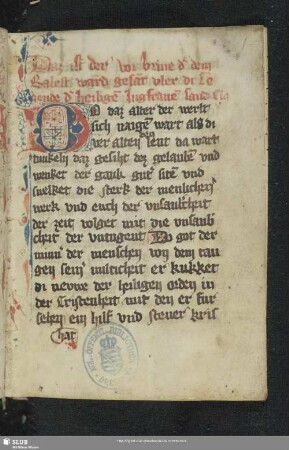 Daz ist der vor brine d dem
Latein ward gesat vber di Le
gende d heiligen Jngfrauen sand Cla
DO daz alter der werlt
sich naigen wart als di
ver alten leut da wart
tunkeln daz gesiht dez gelauben vnd
wenket der gank gut siten vnd
swelket die sterk der menlichen
werk vnd euch der vnsauberheit
der zeit volget mit die vnsaub
cheit der vntugent Do got der
minner der menschen von dem tau
gen seiner milticheit er kukket
di newe der heiligen orden in
der Cristenheit mit den er fur
sehen ein hilf vnd steuer kris
hat
SLUB